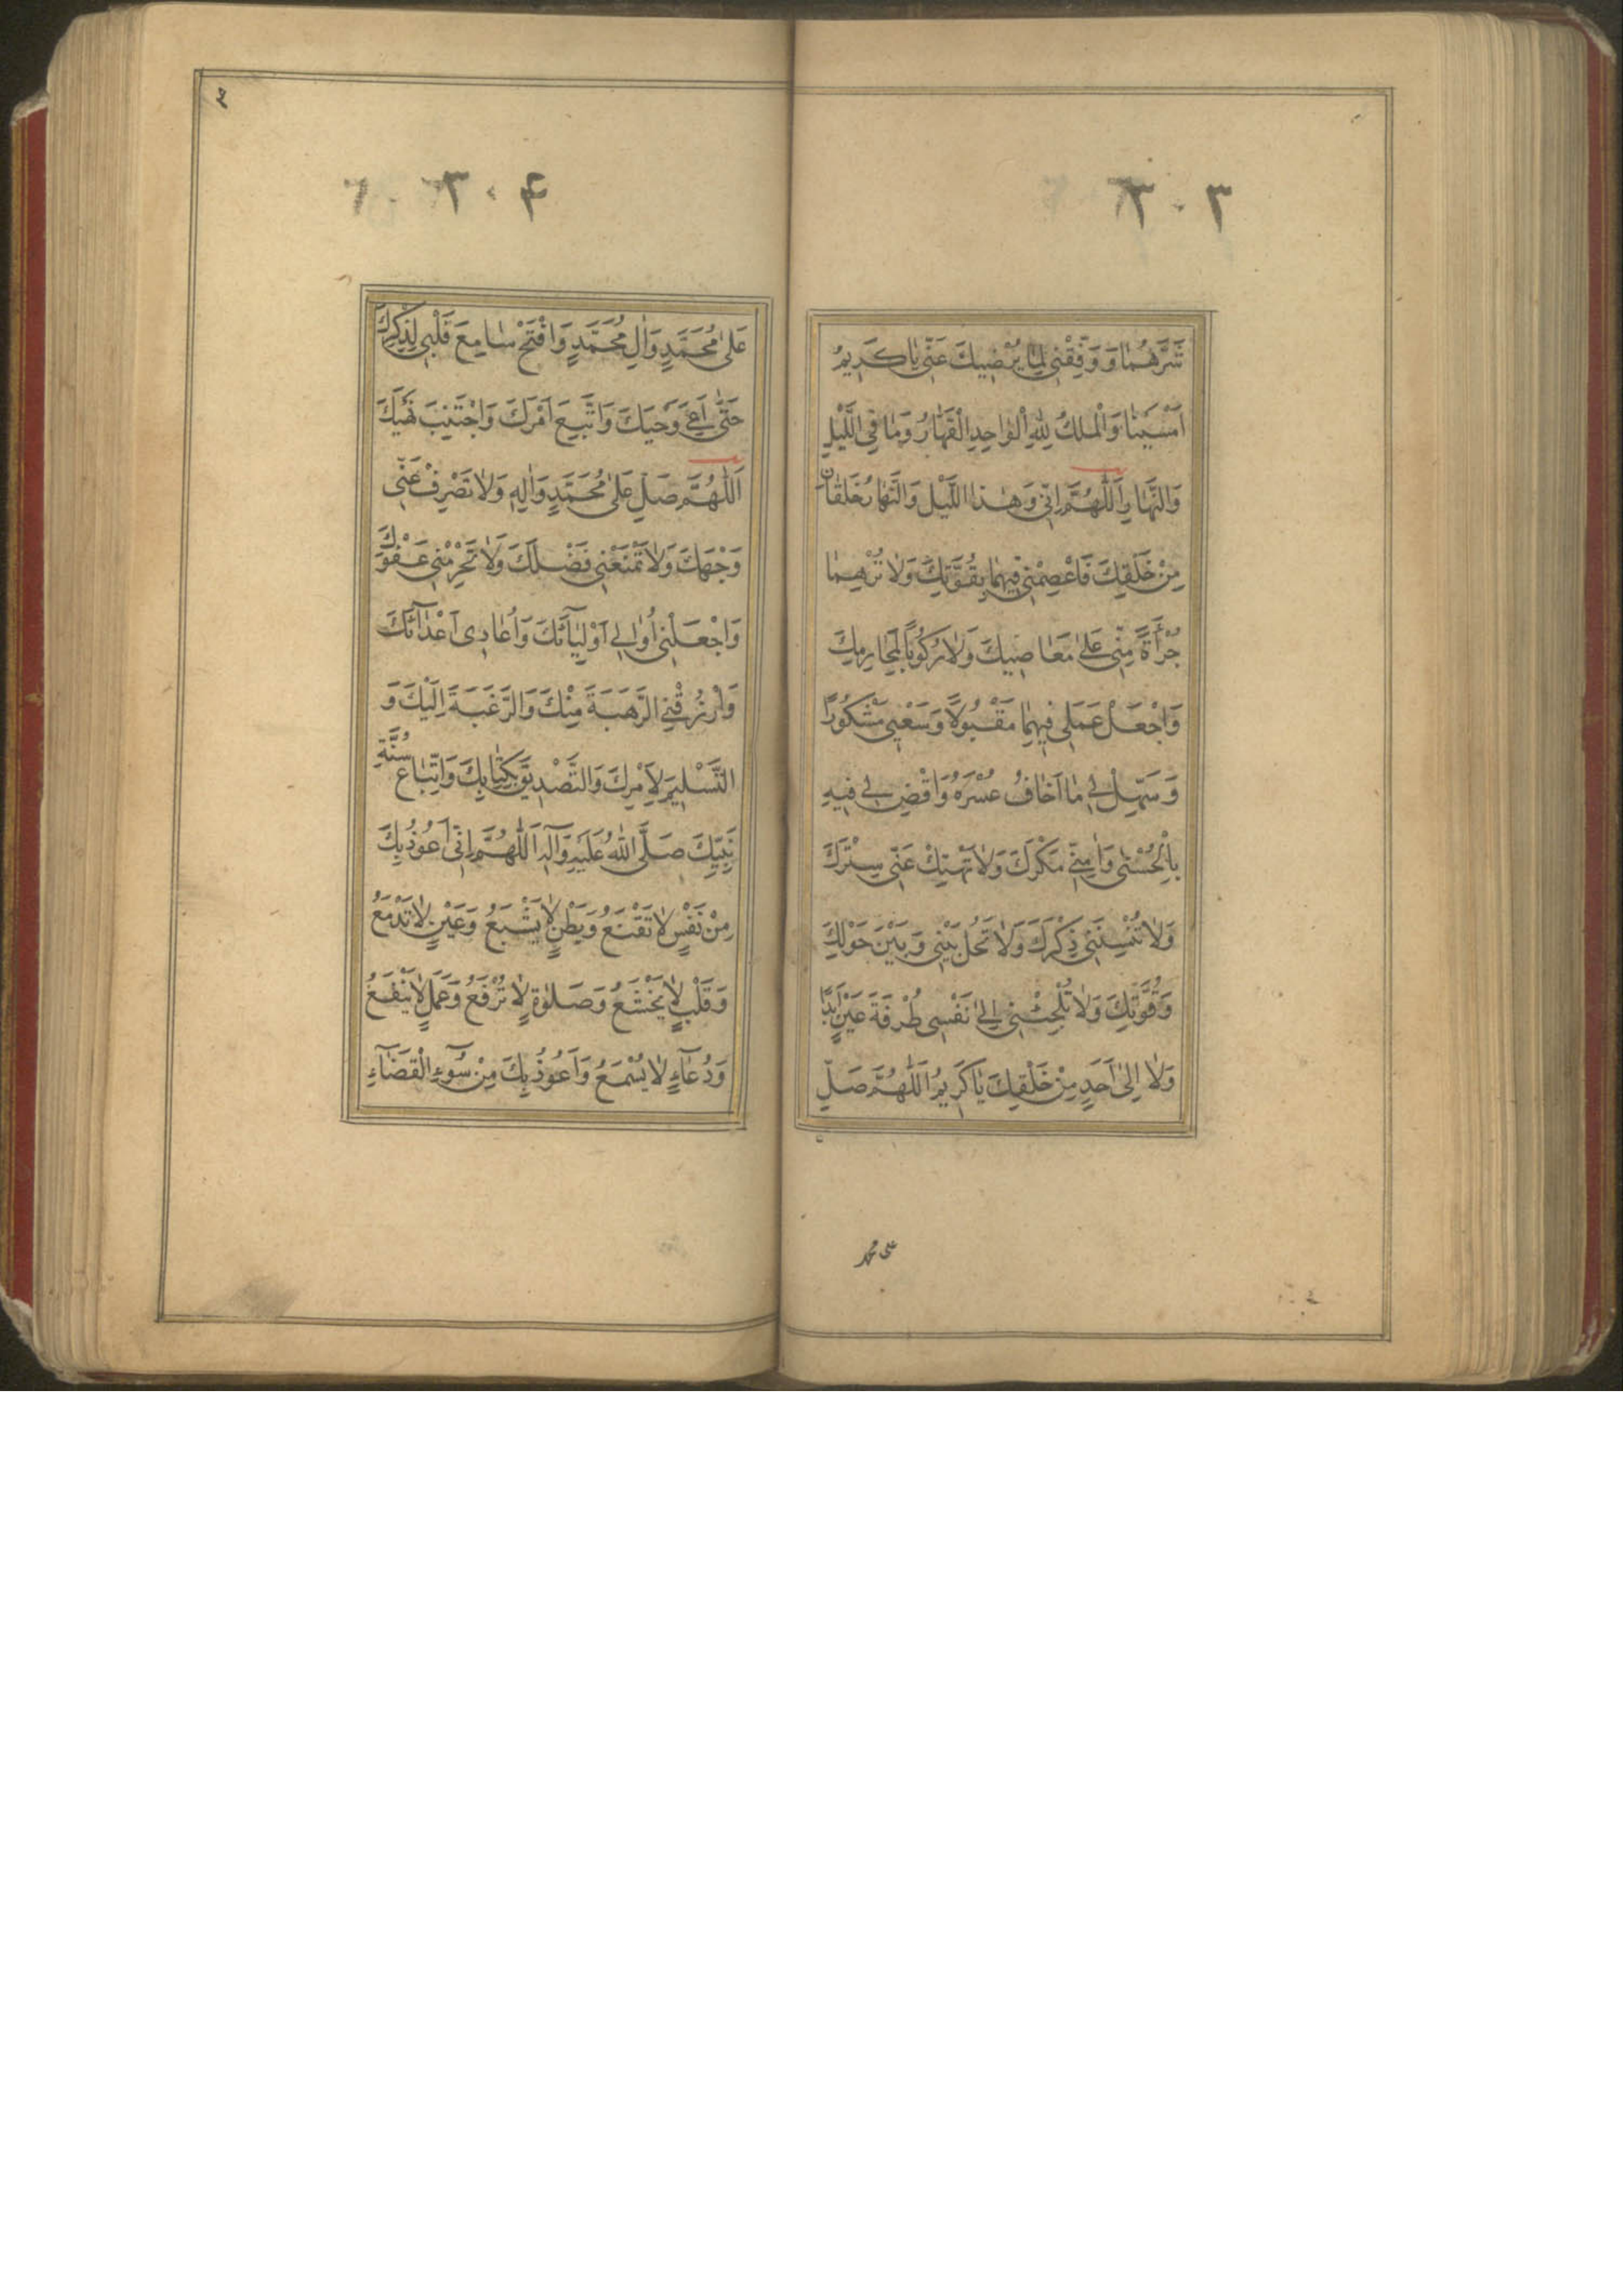 ٣٠٣
شَرَّهُمَا وَ وَفِّقْنِي لِمَا يُرْضِيكَ عَنِّي يَا كَرِيمُ
اَمْسَيْنَا وَالْمُلْكُ لِلّٰهِ الْوَاحِدِ الْقَهَّارِ وَمَا فِي اللَّيْلِ
وَالنَّهَارِ اَللّٰهُمَّ اِنِّي وَهٰذَا اللَّيْلَ وَالنَّهَارَ خَلْقَانِ
مِنْ خَلْقِكَ فَاعْصِمْنِي فِيهِمَا بِقُوَّتِكَ وَلَا تُرِهِمَا
جُرْأَةً مِنِّي عَلٰى مَعَاصِيكَ وَلَا رُكُوبًا لِمَحَارِمِكَ
وَاجْعَلْ عَمَلِي فِيهِمَا مَقْبُولًا وَسَعْيِي مَشْكُورًا
وَسَهِّلْ لِي مَا اَخَافُ عُسْرَهُ وَاقْضِ لِي فِيهِ
بِالْحُسْنٰى وَاٰمِنِّي مَكْرَكَ وَلَا تَهْتِكْ عَنِّي سِتْرَكَ
وَلَا تُنْسِنِي ذِكْرَكَ وَلَا تَحُلْ بَيْنِي وَبَيْنَ حَوْلِكَ
وَقُوَّتِكَ وَلَا تُلْجِئْنِي اِلٰى نَفْسِي طُرْفَةَ عَيْنٍ اَبَدًا
وَلَا اِلٰى اَحَدٍ مِنْ خَلْقِكَ يَا كَرِيمُ اَللّٰهُمَّ صَلِّ
على محمد
٣٠٤
عَلٰى مُحَمَّدٍ وَاٰلِ مُحَمَّدٍ وَافْتَحْ مَسَامِعَ قَلْبِي لِذِكْرِكَ
حَتّٰى اَعِيَ وَحْيَكَ وَاتَّبِعَ اَمْرَكَ وَاجْتَنِبَ نَهْيَكَ
اَللّٰهُمَّ صَلِّ عَلٰى مُحَمَّدٍ وَاٰلِهِ وَلَا تَصْرِفْ عَنِّي
وَجْهَكَ وَلَا تَمْنَعْنِي فَضْلَكَ وَلَا تَحْرِمْنِي عَفْوَكَ
وَاجْعَلْنِي اُوَالِي اَوْلِيَآئَكَ وَاُعَادِي اَعْدَآئَكَ
وَارْزُقْنِي الرَّهْبَةَ مِنْكَ وَالرَّغْبَةَ اِلَيْكَ وَ
التَّسْلِيمَ لِاَمْرِكَ وَالتَّصْدِيقَ بِكِتَابِكَ وَاتِّبَاعَ سُنَّةِ
نَبِيِّكَ صَلَّى اللّٰهُ عَلَيْهِ وَآلِهِ اَللّٰهُمَّ اِنِّي اَعُوذُ بِكَ
مِنْ نَفْسٍ لَا تَقْنَعُ وَبَطْنٍ لَا يَشْبَعُ وَعَيْنٍ لَا تَدْمَعُ
وَقَلْبٍ لَا يَخْشَعُ وَصَلٰوةٍ لَا تُرْفَعُ وَعَمَلٍ لَا يَنْفَعُ
وَدُعَآءٍ لَا يُسْمَعُ وَاَعُوذُ بِكَ مِنْ سُوٓءِ الْقَضَآءِ